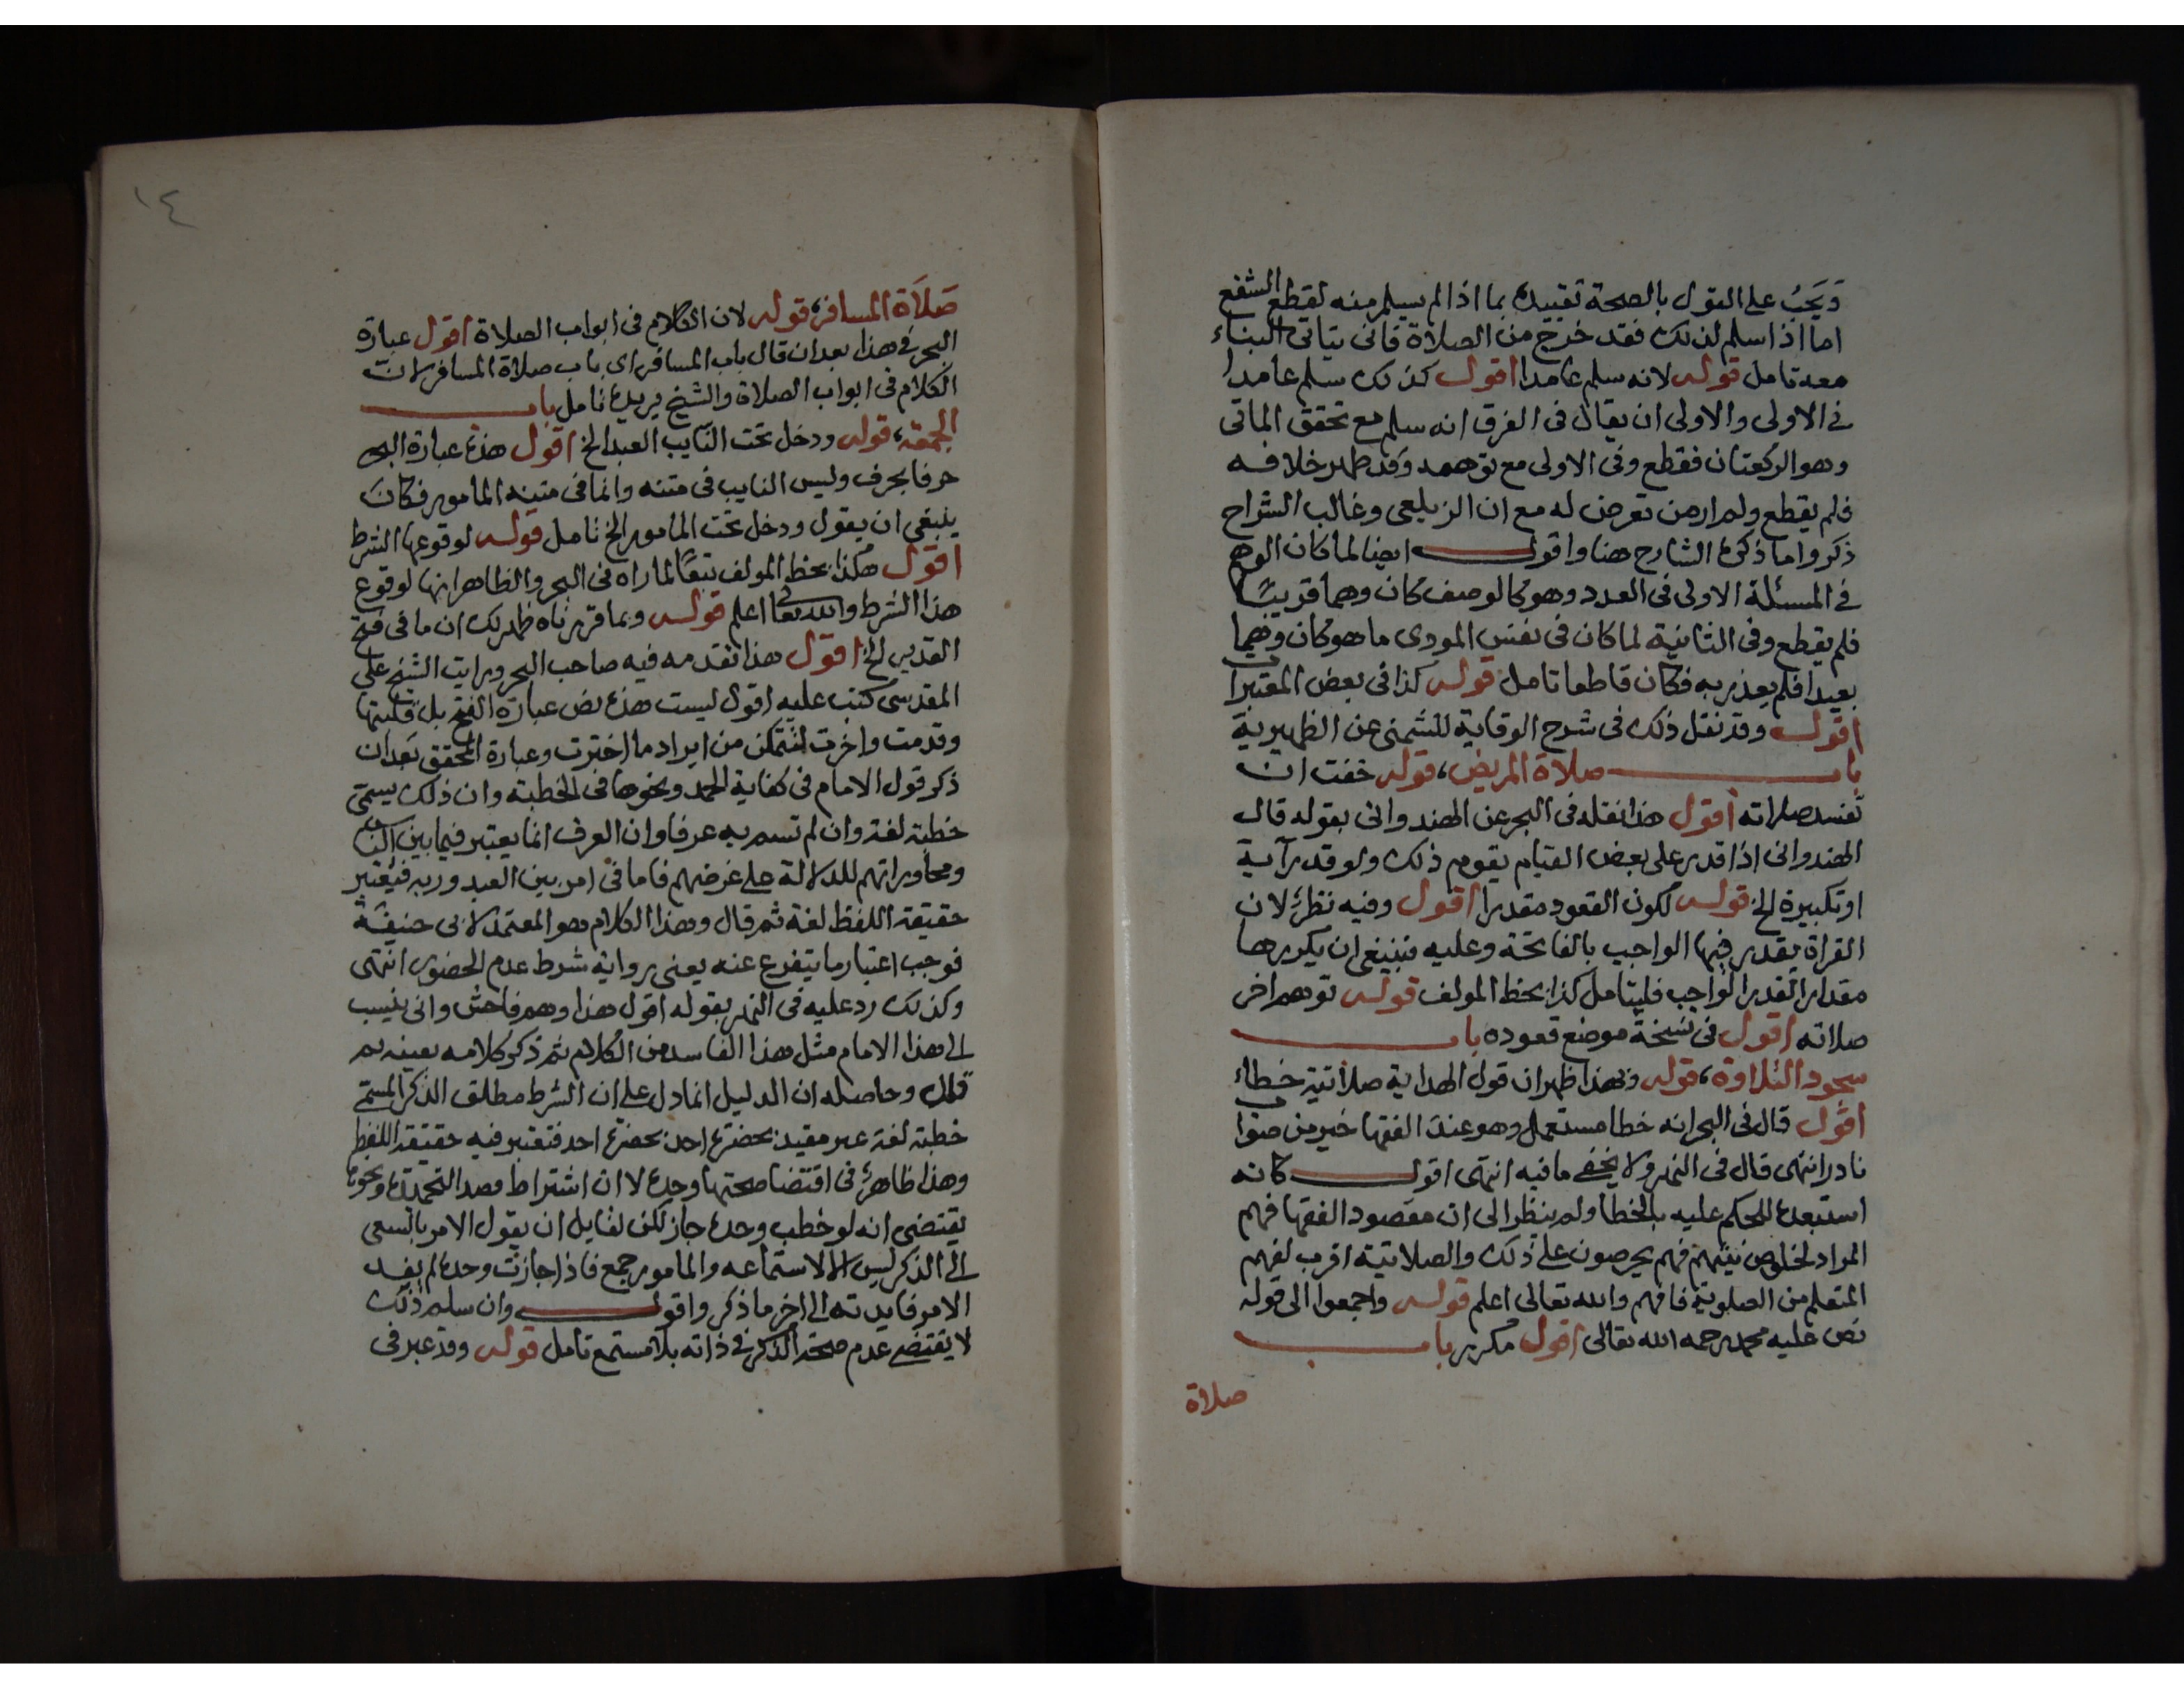 ويجب على القول بالصحة تقييده بما اذا لم يسلم منه لقطع الشفع
اما اذا سلم لذلك فقد خرج من الصلاة فانى يتاتى البناء
معه تامل قوله لانه سلم عامدا اقول كذلك سلم عامدا
فى الاولى والاولى ان يقال فى الفرق انه سلم مع تحقق الماتى
وهو الركعتان فقطع وفى الاولى مع توهمه وقد ظهر خلافه
فلم يقطع ولم ار من تعرض له مع ان الزيلعى وغالب الشراح
ذكروا ما ذكره الشارح هنا واقول ايضا لما كان الوهم
فى المسئلة الاولى فى العدد وهو كالوصف كان وهما قريبا
فلم يقطع وفى الثانية لما كان فى نفس المودى ما هو كان وهما
بعيدا فلم يعذر به فكان قاطعا تامل قوله كذا فى بعض المعتبرات
اقول وقد نقل ذلك فى شرح الوقاية للشمنى عن الظهيرية
باب صلاة المريض، قوله خفت ان
تفسد صلاته اقول هذا نقله فى البحر عن الهندوانى بقوله قال
الهندوانى اذا قدر على بعض القيام يقوم ذلك ولو قدر آية
او تكبيرة الخ قوله لكون القعود مقدرا اقول وفيه نظر لان
القراة يقدر فيها الواجب بالفاتحة وعليه فينبغى ان يكررها
مقدار القدر الواجب فليتامل كذا بخط المولف قوله توهم اخر
صلاته اقول فى نسخة موضع قعوده باب
سجود التلاوة، قوله وبهذا ظهر ان قول الهداية صلاتية خطاء
اقول قال فى البحر انه خطا مستعمل وهو عند الفقها خير من صواب
نادر انتهى قال فى النهر ولا يخفى ما فيه انتهى اقول كانه
استبعده للحكم عليه بالخطا ولم ينظر الى ان مقصود الفقها فهم
المراد لخلوص نيتهم فهم يحرصون على ذلك والصلاتية اقرب لفهم
المتعلم من الصلوية فافهم والله تعالى اعلم قوله واجمعوا الى قوله
نص عليه محمد رحمه الله تعالى اقول مكرر باب
صلاة
١٤
صلاة المسافر، قوله لان الكلام فى ابواب الصلاة اقول عبارة
البحر فى هذا بعد ان قال باب المسافر اى باب صلاة المسافر لان
الكلام فى ابواب الصلاة والشيخ يريده تامل باب
الجمعة، قوله ودخل تحت النايب العبد الخ اقول هذه عبارة البحر
حرفا بحرف وليس النايب فى متنه وانما فى متنه المامور فكان
ينبغى ان يقول ودخل تحت المامور الخ تامل قوله لوقوعها الشرط
اقول هكذا بخط المولف تبعا لما راه فى البحر والظاهر انها لوقوع
هذا الشرط والله تعالى اعلم قوله وبما قررناه ظهر لك ان ما فى فتح
القدير الخ اقول هذا تقدمه فيه صاحب البحر ورايت الشيخ على
المقدسى كتب عليه اقول ليست هذه نص عبارة الفتح بل قلبتها
وقدمت واخرت لتتمكن من ايراد ما اخترت وعبارة المحقق بعد ان
ذكر قول الامام فى كفاية الحمد ونحوها فى الخطبة وان ذلك يسمى
خطبة لغة وان لم تسم به عرفا وان العرف انما يعتبر فيما بين الناس
ومحاوراتهم للدلالة على غرضهم فاما فى امر بين العبد وربه فيعتبر
حقيقة اللفظ لغة ثم قال وهذا الكلام هو المعتمد لابى حنيفة
فوجب اعتبار ما يتفرع عنه يعنى رواية شرط عدم الحضور انتهى
وكذلك رد عليه فى النهر بقوله اقول هذا وهم فاحش وانى ينسب
الى هذا الامام مثل هذا الفاسد من الكلام ثم ذكر كلامه بعينه ثم
قال وحاصله ان الدليل انما دل على ان الشرط مطلق الذكر المسمى
خطبة لغة غير مقيد بحضرة احد فتعتبر فيه حقيقة اللفظ
وهذا ظاهر فى اقتضا صحتها وحده لا ان اشتراط قصد التحميدة ونحوها
يقتضى انه لو خطب وحده جاز لكن لقايل ان يقول الامر بالسعى
الى الذكر ليس الا لاستماعه والمامور جمع فاذا جازت وحده لم يفد
الامر فايدته الى اخر ما ذكر واقول وان سلم ذلك
لا يقتضى عدم صحة الذكر فى ذاته بلا مستمع تامل قوله وقد عبر فى